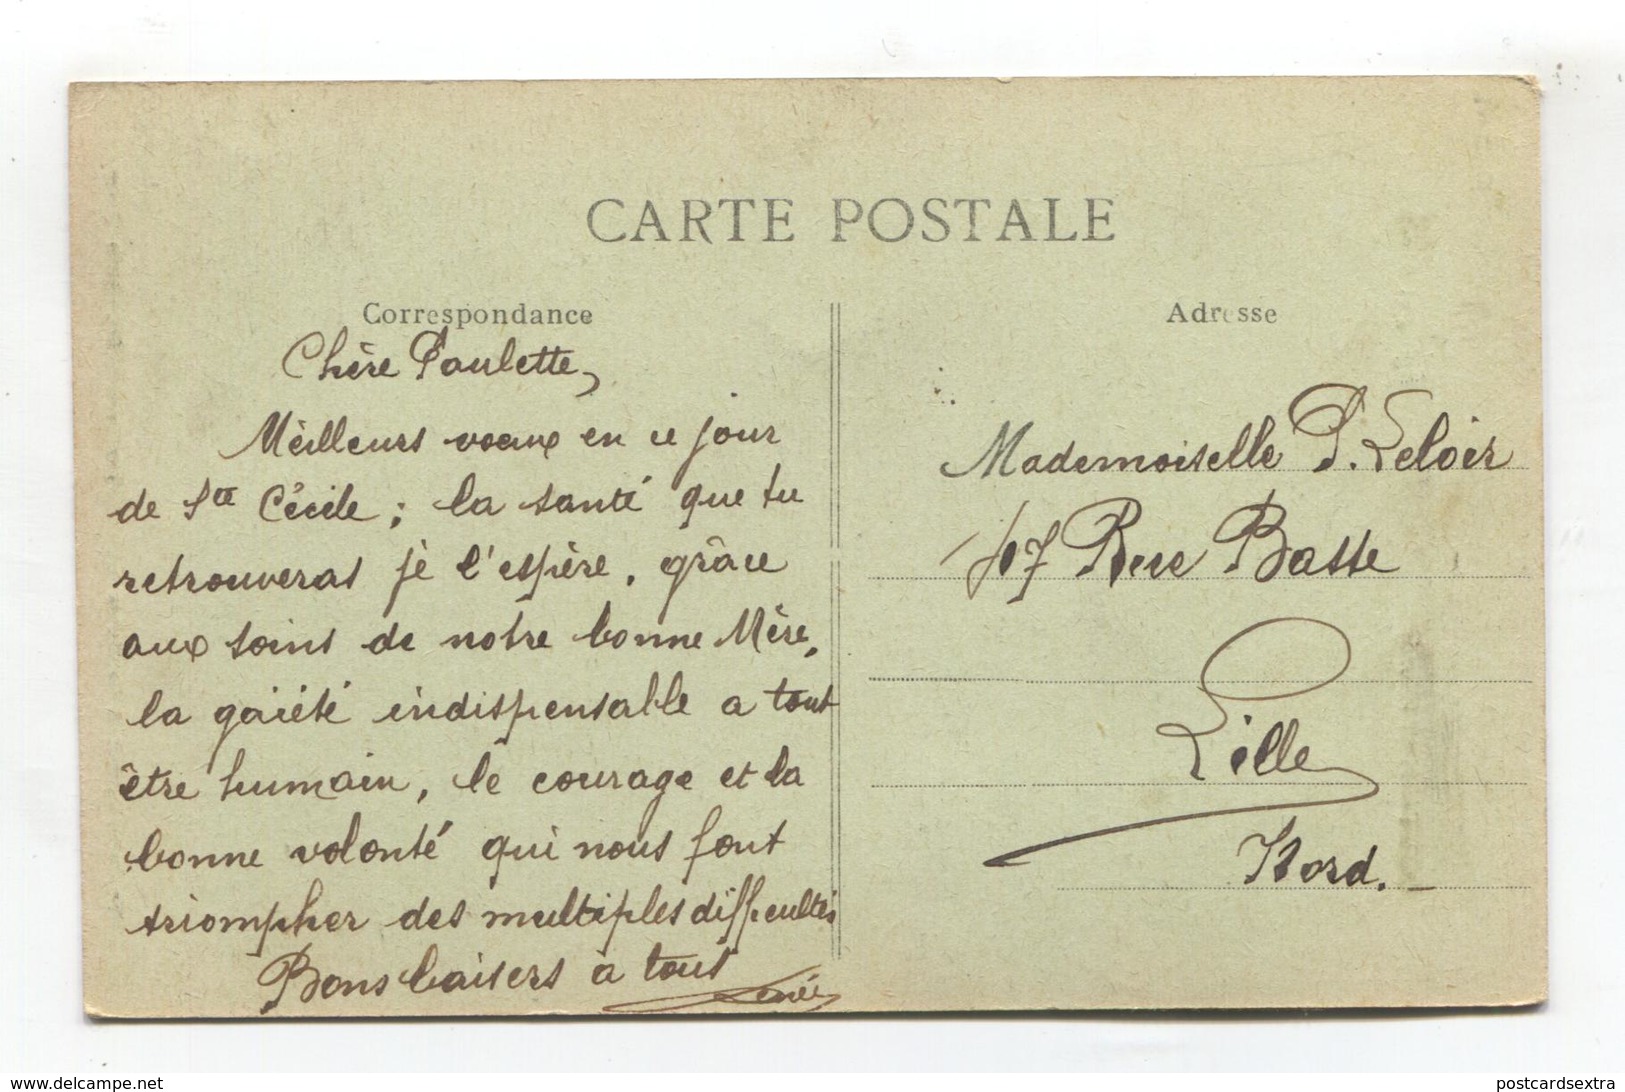 CARTE POSTALE
Correspondance
Chère Paulette,
Meilleurs voeux en ce jour
de Ste Cécile ; la santé que tu
retrouveras je l'espère, grâce
aux soins de notre bonne Mère,
la gaiété indispensable a tout
être humain, le courage et la
bonne volonté qui nous font
triompher des multiples difficultés
Bons baisers à tous
Adresse
Mademoiselle P. Leloir
107 Rue Basse
Lille
Nord.
www.delcampe.net
postcardsextra